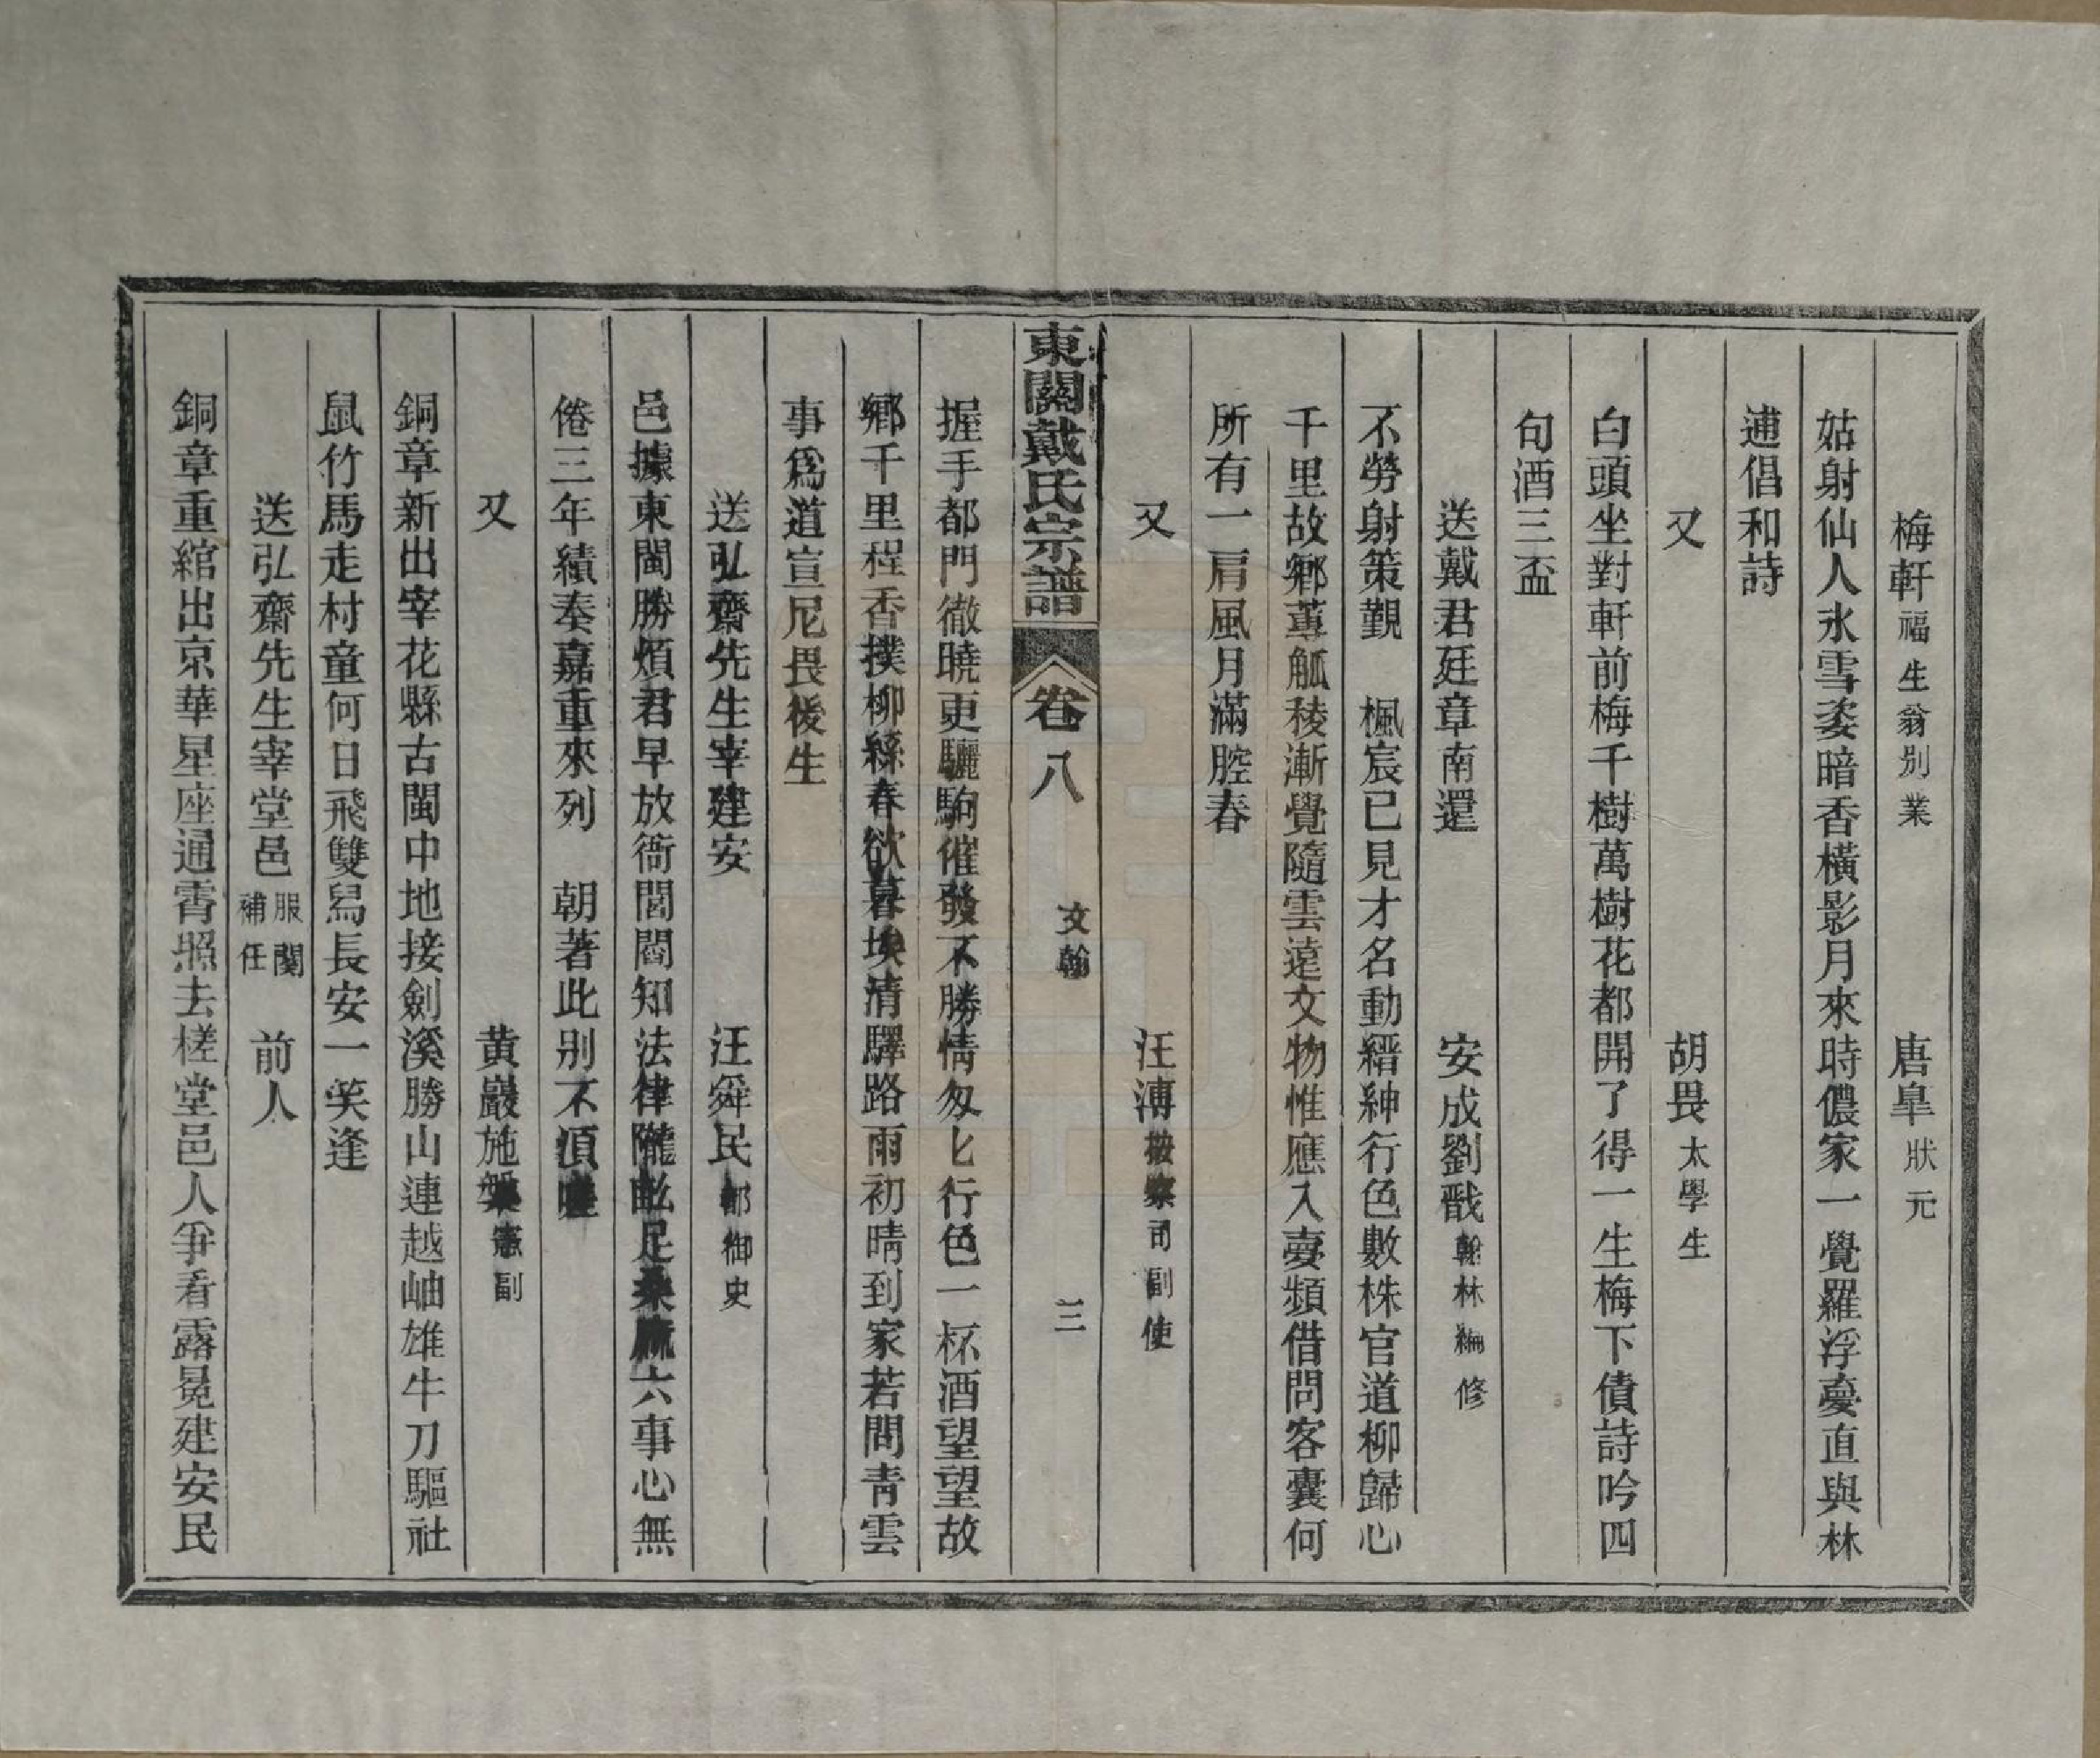 梅軒福生翁别業　唐臯狀元
姑射仙人氷雪姿暗香橫影月來時儂家一覺羅浮夢直與林
逋倡和詩
又　胡畏太學生
白頭坐對軒前梅千樹萬樹花都開了得一生梅下債詩吟四
句酒三盃
送戴君廷章南還　安成劉戩翰林編修
不勞射策覲　楓宸已見才名動縉紳行色數株官道柳歸心
千里故鄉蓴觚稜漸覺隨雲遠文物惟應入夢頻借問客囊何
所有一肩風月滿腔春
又　汪溥按察司副使
東關戴氏宗譜　卷八　文翰　三
握手都門徹曉更驪駒催發不勝情匆匕行色一杯酒望望故
鄉千里程香撲柳緜春欲暮埃清驛路雨初晴到家若問青雲
事爲道宣尼畏後生
送弘齋先生宰建安　汪舜民都御史
邑據東閩勝煩君早放衙閭閻知法律隴畝足桑麻六事心無
倦三年績奏嘉重來列　朝著此别不湏嗟
又　黄巖施槃憲副
銅章新出宰花縣古閩中地接劍溪勝山連越岫雄牛刀驅社
鼠竹馬走村童何日飛雙舄長安一笑逢
送弘齋先生宰堂邑服闋補任　前人
銅章重綰出京華星座通霄照去槎堂邑人爭看露冕建安民